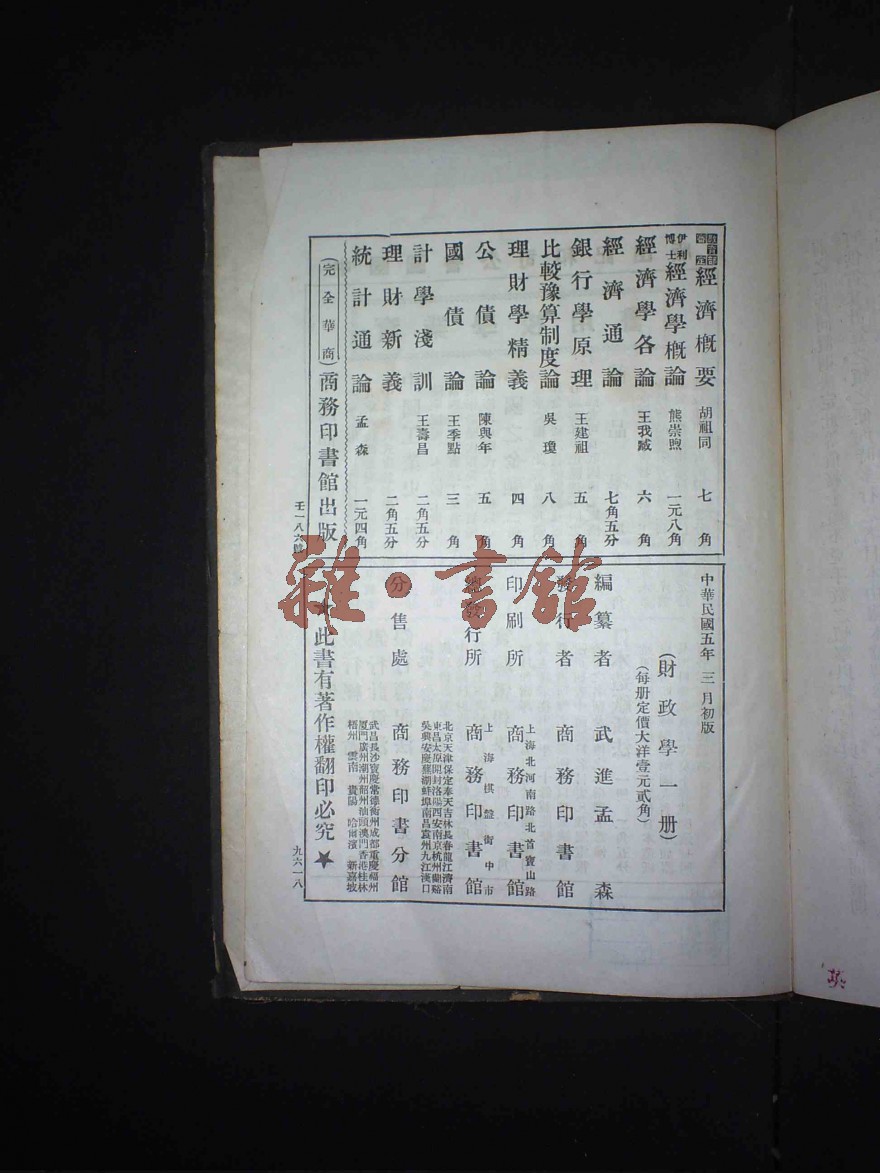 經濟概要 胡祖同 七角
伊利博士經濟學概論 熊崇煦 一元八角
經濟學各論 王我臧 六角
經濟通論 七角五分
銀行學原理 王建祖 五角
比較豫算制度論 吳瓊 八角
理財學精義 四角
公債論 陳與年 五角
國債論 王季點 三角
計學淺訓 王壽昌 二角五分
理財新義 二角五分
統計通論 孟森 一元四角
(完全華商)商務印書館出版
中華民國五年三月初版
(財政學一册)
(每册定價大洋壹元貳角)
編纂者 武進孟森
發行者 商務印書館
上海北河南路北首寶山路
印刷所 商務印書館
上海棋盤街中市
總發行所 商務印書館
北京天津保定奉天吉林長春龍江濟南
東昌太原開封洛陽西安南京杭州蘭谿
吳興安慶蕪湖蚌埠南昌袁州九江漢口
分售處 商務印書分館
武昌長沙寶慶常德衡州成都重慶福州
厦門廣州潮州韶州汕頭澳門香港桂林
梧州雲南貴陽哈爾濱新嘉坡
★此書有著作權翻印必究★
九六一八
雜·書館